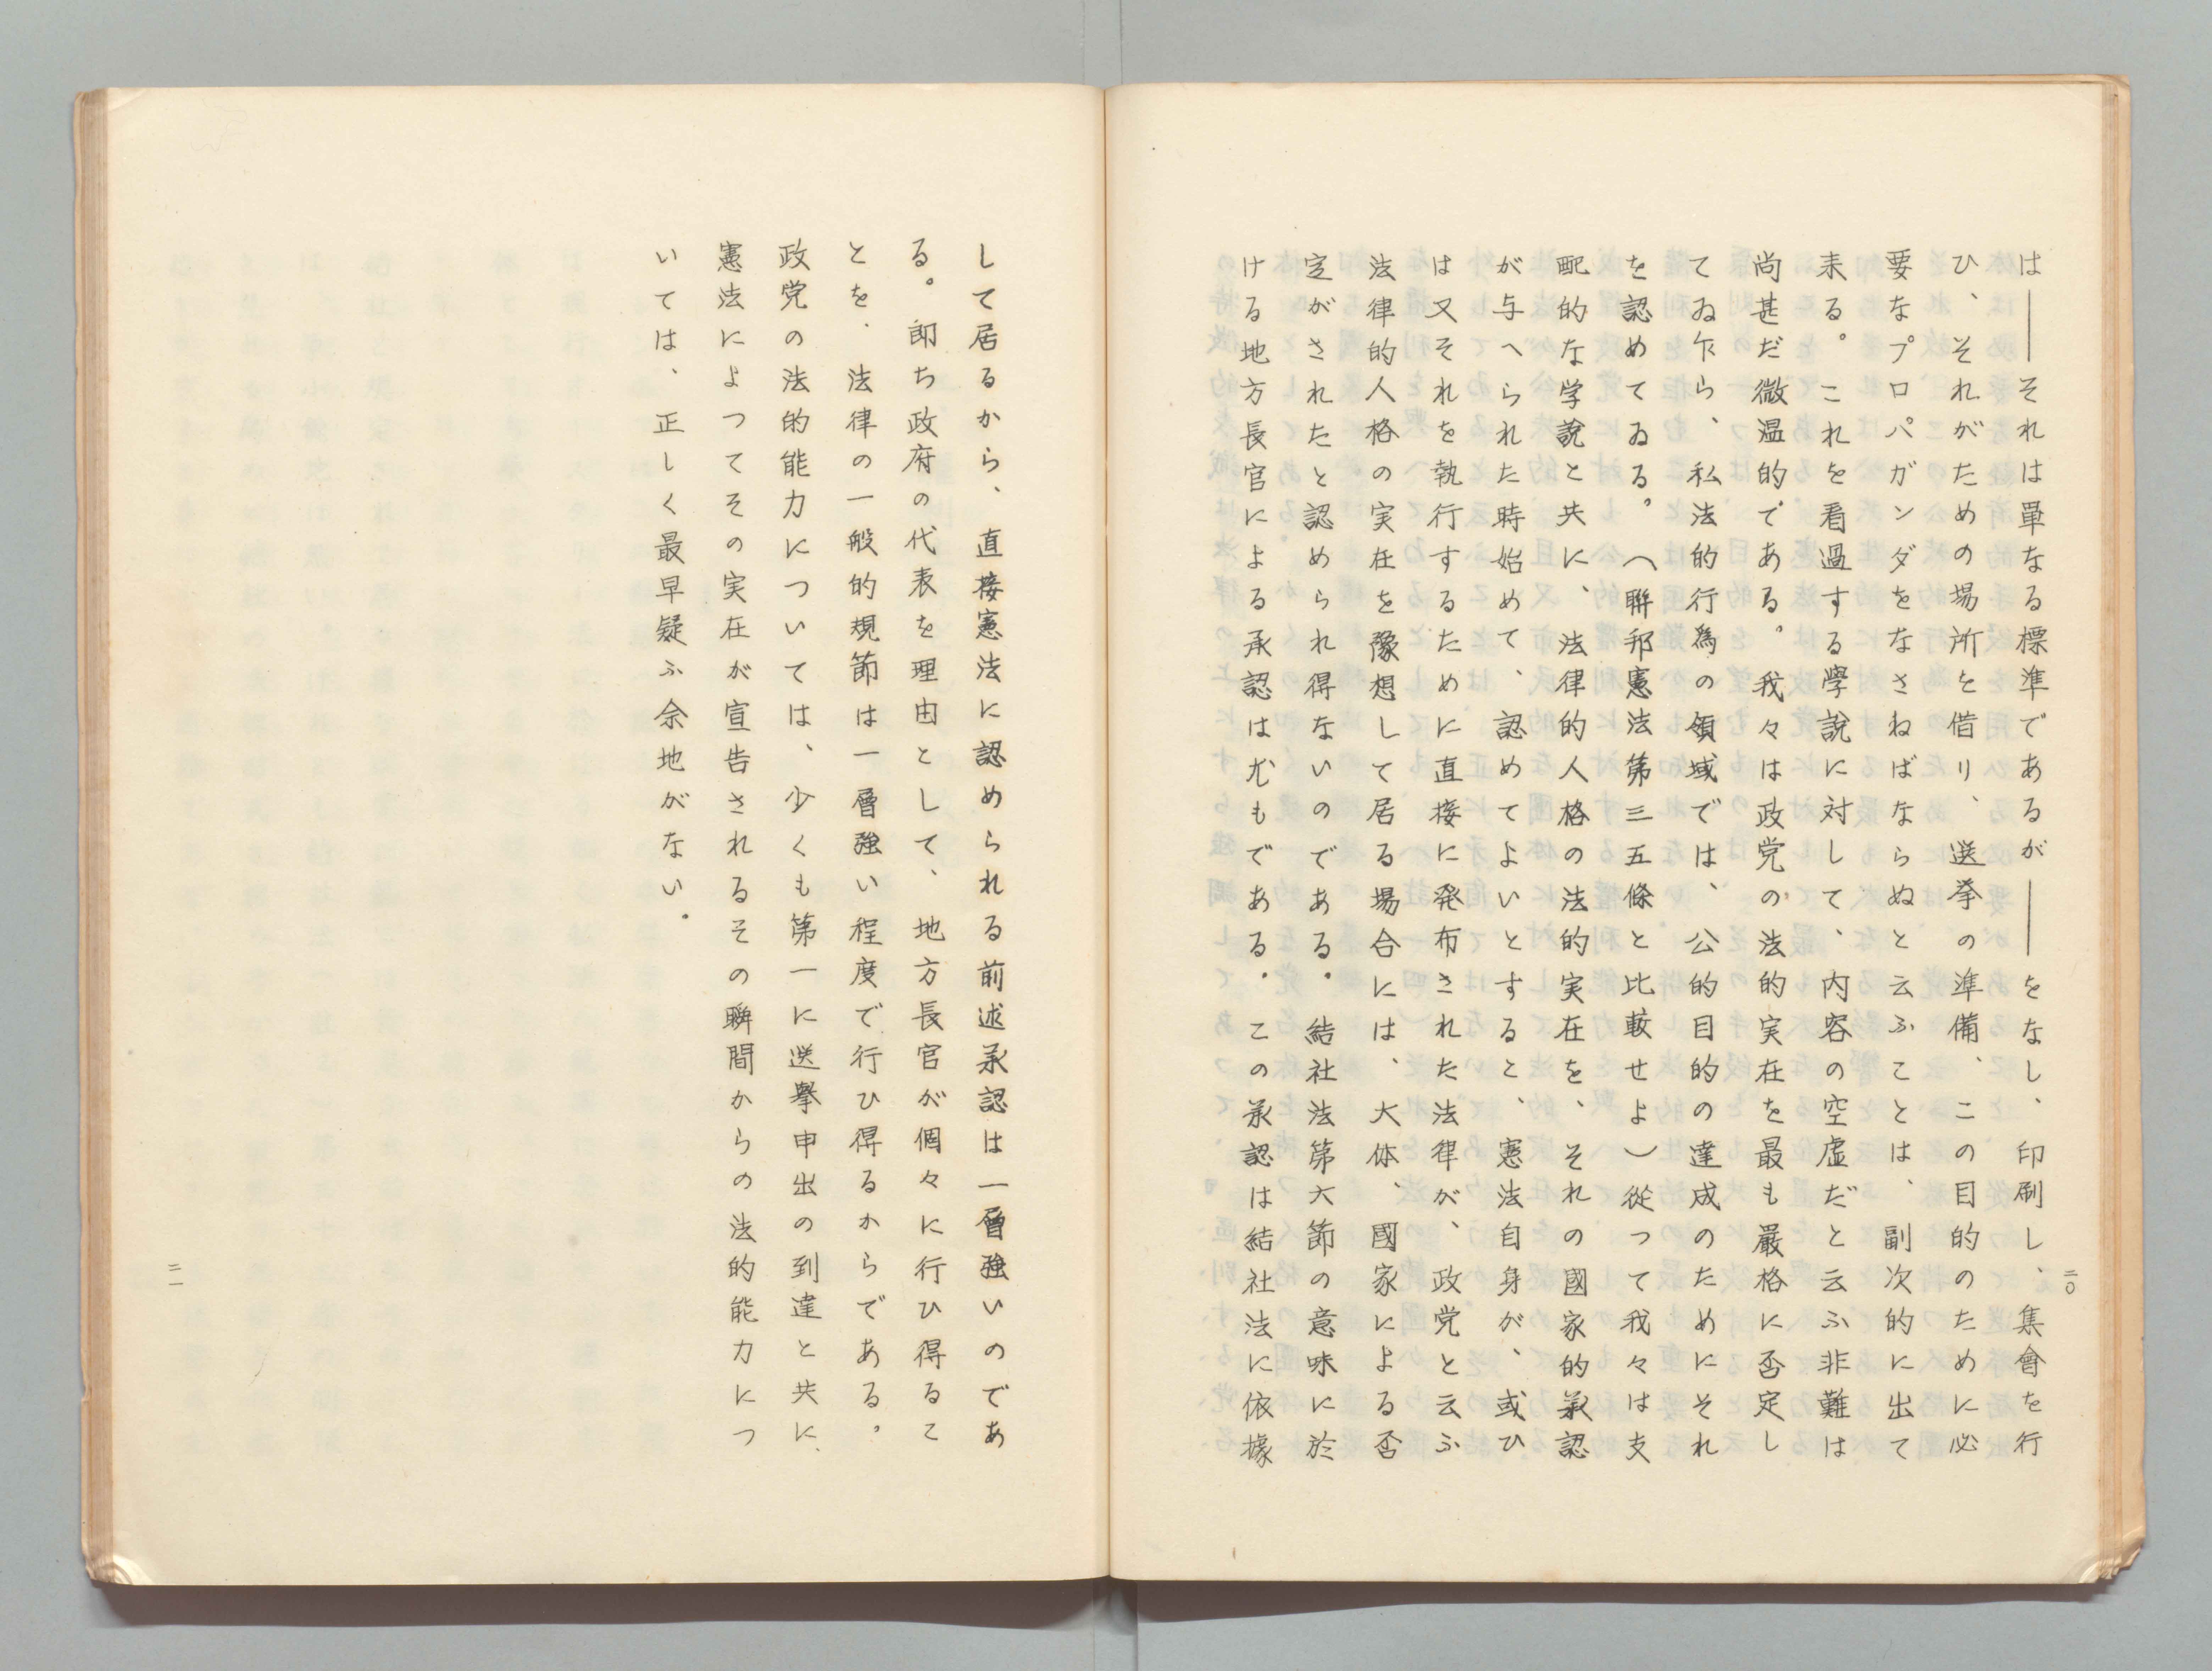 は――それは単なる標準であるが――をなし、印刷し、集會を行
ひ、それがための場所を借り、選挙の準備、この目的のために必
要なプロパガンダをなさねばならぬと云ふことは、副次的に出て
来る。これを看過する學說に対して、内容の空虚だと云ふ非難は
尚甚だ微温的である。我々は政党の法的実在を最も嚴格に否定し
てゐ乍ら、私法的行爲の領域では、公的目的の達成のためにそれ
を認めてゐる。（聯邦憲法第三五條と比較せよ）從つて我々は支
配的な学說と共に、法律的人格の法的実在を、それの國家的承認
が与へられた時始めて、認めてよいとすると、憲法自身が、或ひ
は又それを執行するために直接に発布された法律が、政党と云ふ
法律的人格の実在を豫想して居る場合には、大体、國家による否
定がされたと認められ得ないのである。結社法第六節の意味に於
ける地方長官による承認は尤もである。この承認は結社法に依據
二〇
して居るから、直接憲法に認められる前述承認は一層強いのであ
る。卽ち政府の代表を理由として、地方長官が個々に行ひ得るこ
とを、法律の一般的規節は一層強い程度で行ひ得るからである。
政党の法的能力については、少くも第一に选擧申出の到達と共に、
憲法によつてその実在が宣告されるその瞬間からの法的能力につ
いては、正しく最早疑ふ余地がない。
二一